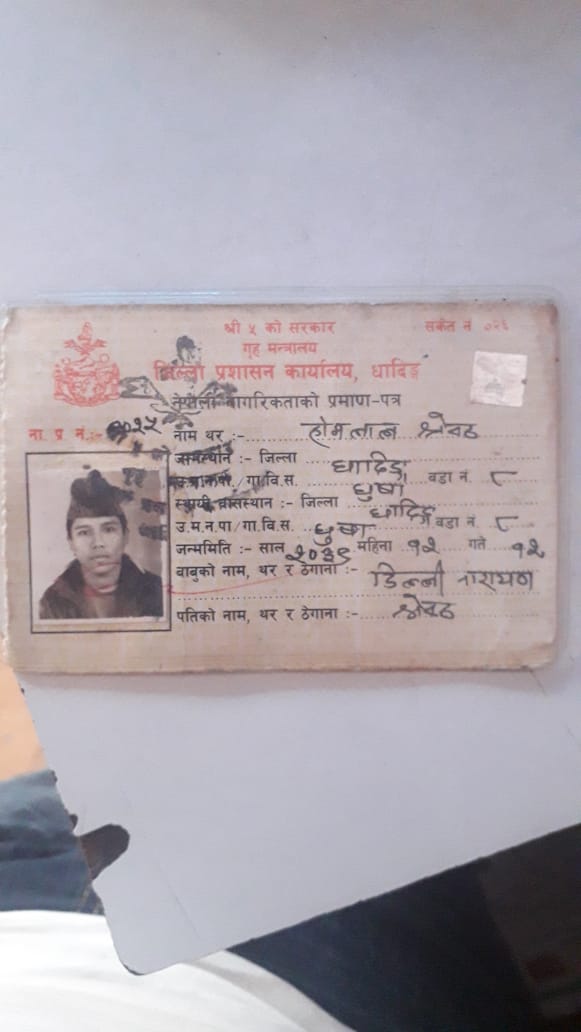 श्री ५ को सरकार
संकेत नं ०२६
गृह मन्त्रालय
जिल्ला प्रशासन कार्यालय, धादिङ
नेपाली नागरिकताको प्रमाण-पत्र
ना. प्र. नं.:-
नाम थर :- होमलाल श्रेष्ठ
जन्मस्थान :- जिल्ला धादिङ
गा.वि.स. धुषा वडा नं. ८
स्थायी वासस्थान :- जिल्ला धादिङ
उ.म.न.पा/गा.वि.स. धुषा वडा नं. ८
जन्ममिति :- साल २०३९ महिना १२ गते १२
बाबुको नाम, थर र ठेगाना :- डिल्ली नारायण
श्रेष्ठ
पतिको नाम, थर र ठेगाना :-